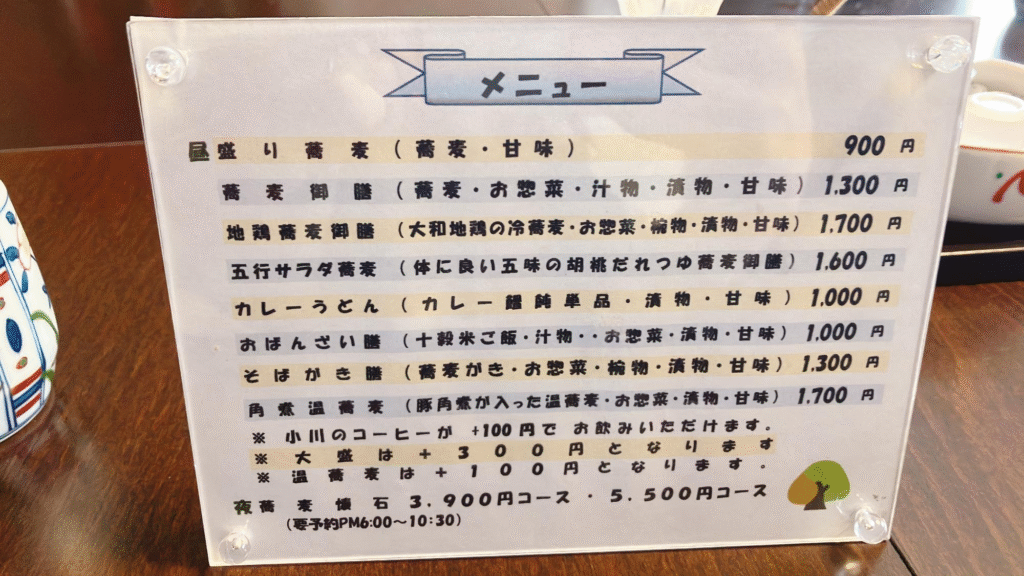 メニュー
昼盛り蕎麦(蕎麦・甘味) 900円
蕎麦御膳(蕎麦・お惣菜・汁物・漬物・甘味) 1.300円
地鶏蕎麦御膳(大和地鶏の冷蕎麦・お惣菜・椀物・漬物・甘味) 1.700円
五行サラダ蕎麦(体に良い五味の胡桃だれつゆ蕎麦御膳) 1.600円
カレーうどん(カレー饂飩単品・漬物・甘味) 1.000円
おばんざい膳(十穀米ご飯・汁物・・お惣菜・漬物・甘味) 1.000円
そばがき膳(蕎麦がき・お惣菜・椀物・漬物・甘味) 1.300円
角煮温蕎麦(豚角煮が入った温蕎麦・お惣菜・漬物・甘味) 1.700円
※ 小川のコーヒーが +100円で お飲みいただけます。
※ 大盛は+300円となります
※ 温蕎麦は+100円となります。
夜蕎麦懐石 3.900円コース・5.500円コース
(要予約PM6:00~10:30)